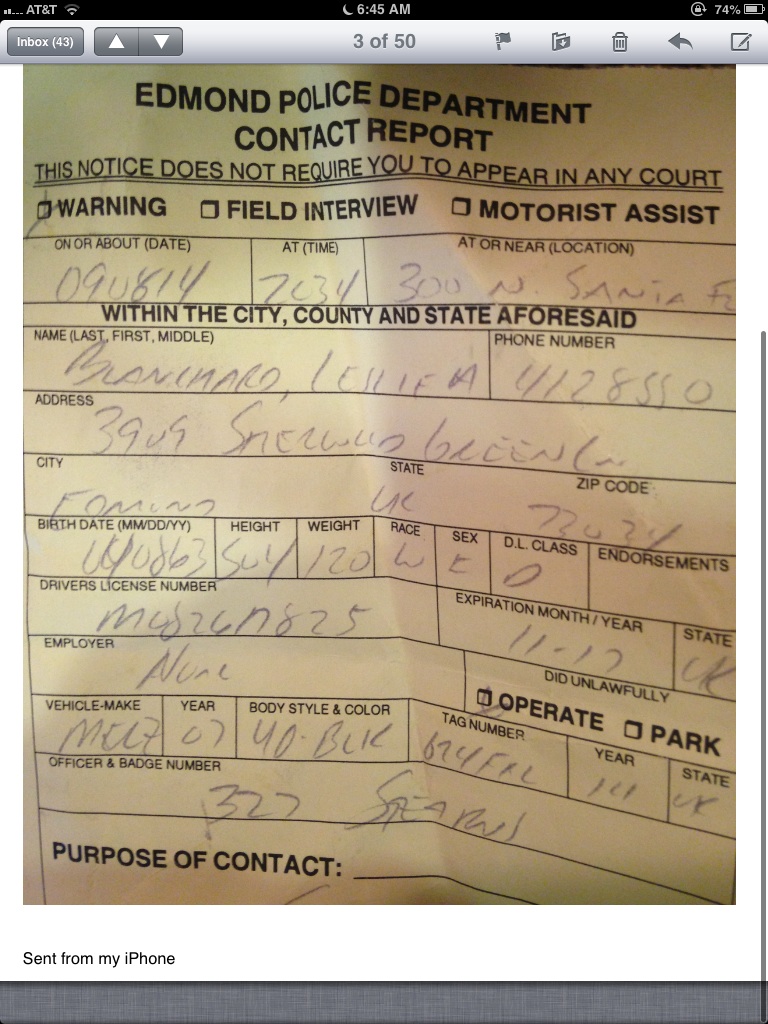 AT&T 6:45 AM 74%
Inbox (43) 3 of 50
EDMOND POLICE DEPARTMENT
CONTACT REPORT
THIS NOTICE DOES NOT REQUIRE YOU TO APPEAR IN ANY COURT
WARNING FIELD INTERVIEW MOTORIST ASSIST
ON OR ABOUT (DATE) AT (TIME) AT OR NEAR (LOCATION)
090814 2034 300 N. SANTA FE
WITHIN THE CITY, COUNTY AND STATE AFORESAID
NAME (LAST, FIRST, MIDDLE) PHONE NUMBER
BLANCHARD, LESLIE A 4128550
ADDRESS
3909 SHERWOOD GREEN LN
CITY STATE ZIP CODE
EDMOND OK
BIRTH DATE (MM/DD/YY) HEIGHT WEIGHT RACE SEX D.L. CLASS ENDORSEMENTS
504 120 W F D
DRIVERS LICENSE NUMBER EXPIRATION MONTH / YEAR STATE
11-17 OK
EMPLOYER DID UNLAWFULLY
None OPERATE PARK
VEHICLE-MAKE YEAR BODY STYLE & COLOR TAG NUMBER YEAR STATE
MERZ 07 4D. BLK 14 OK
OFFICER & BADGE NUMBER
327 STEARNS
PURPOSE OF CONTACT:
Sent from my iPhone